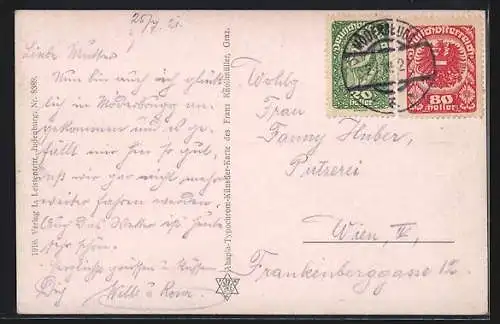 25/7. 21.
Liebe Mutter
Nun bin auch ich glück-
lich in Möderbrugg an-
gekommen und es ge-
fällt mir hier so gut,
daß wir gar nicht mehr
weiter fahren werden.
Auch das Wetter ist heute
sehr schön.
Herzlichst grüssen u Küssen
Dich Willi u
1916. Verlag L. Leistentritt, Nr. 8398.
Ahapla-Typochrom-Künstler-Karte des Franz Knollmüller, Graz.
Deutschösterreich
20
Heller
Deutschösterreich
80
Heller
Wohlg
Frau
Fanny Huber,
Putzerei
Wien, IV.,
Frankenberggasse 12.